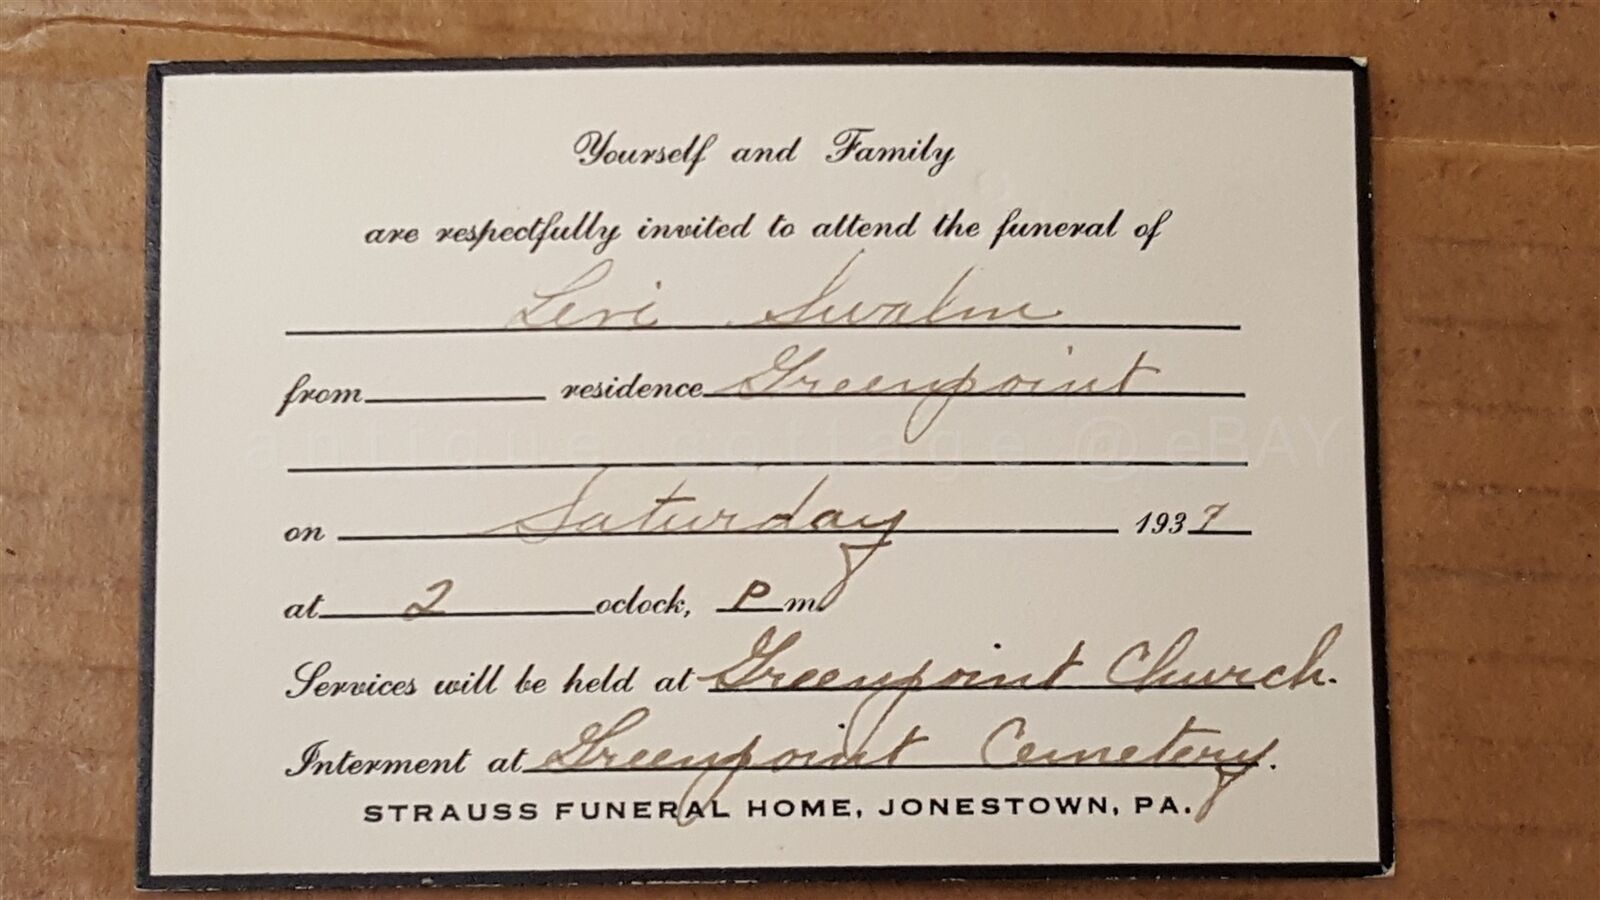 Yourself and Family
are respectfully invited to attend the funeral of
Levi Swalm
from residence Greenpoint
antique cottage @ eBAY
on Saturday 1937
at 2 oclock, P m.
Services will be held at Greenpoint Church.
Interment at Greenpoint Cemetery.
STRAUSS FUNERAL HOME, JONESTOWN, PA.